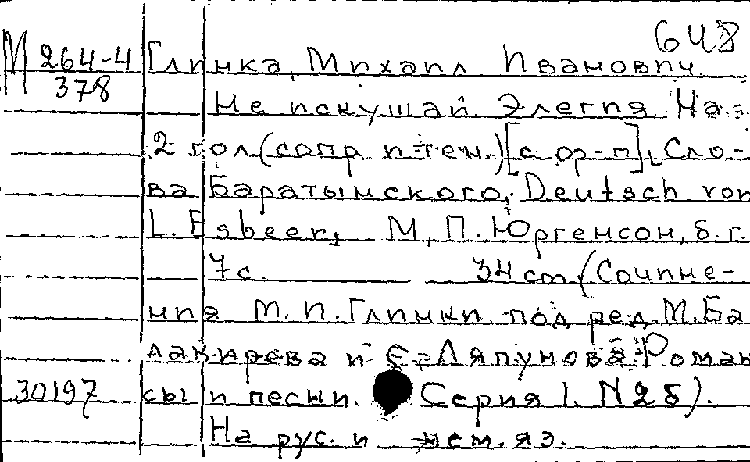 648
М 264-4 Глинка, Михаил Иванович.
378 Не искушай Элегия На
2 гол (сопр и тен.) [с ор-п]. Сло-
ва Баратынского, Deutsch von
L. Esbeer, М, П. Юргенсон, б.г.
7с. 34 cm (Сочине-
ния М. И. Глинки под ред. М. Ба
лакирева и С. Ляпунова. Роман
30197 сы и песни. Серия 1. N 25).
На рус. и нем. яз.